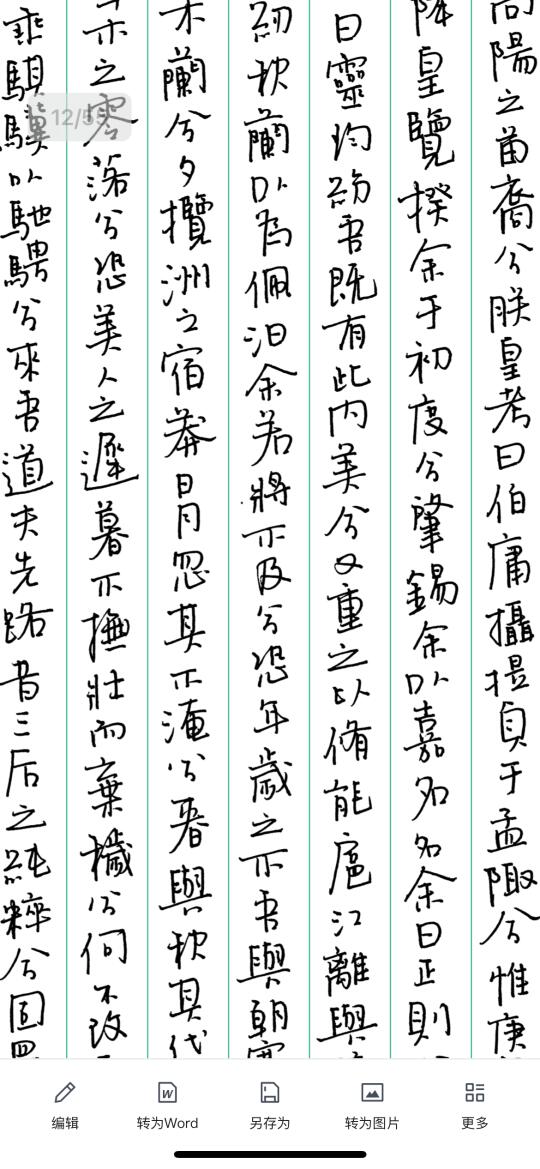 高陽之苗裔兮朕皇考曰伯庸攝提貞于孟陬兮惟庚
降皇覽揆余于初度兮肇錫余以嘉名名余曰正則
曰靈均紛吾既有此内美兮又重之以脩能扈江離與
紉秋蘭以為佩汩余若將不及兮恐年歲之不吾與朝
木蘭兮夕攬洲之宿莽日月忽其不淹兮春與秋其代
木之零落兮恐美人之遲暮不撫壯而棄穢兮何不改
乘騏驥以馳騁兮來吾道夫先路昔三后之純粹兮固
编辑
转为Word
另存为
转为图片
更多